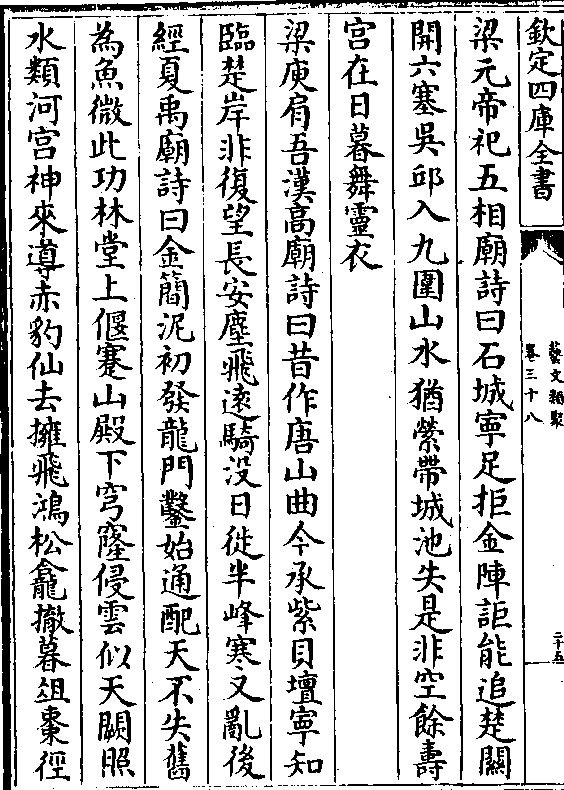 欽定四庫全書
藝文類聚
卷三十八
二十五
梁元帝祀五相廟詩曰石城寧足拒金陣詎能追楚關
開六塞吳邱入九圍山水猶縈帶城池失是非空餘壽
宫在日暮舞靈衣
梁庾肩吾漢高廟詩曰昔作唐山曲今承紫貝壇寧知
臨楚岸非復望長安塵飛逺騎没日徙半峰寒又亂後
經夏禹廟詩曰金簡泥初發龍門鑿始通配天不失舊
為魚微此功林堂上偃蹇山殿下穹窿侵雲似天闕照
水類河宫神來導赤豹仙去擁飛鴻松龕撤暮俎棗徑